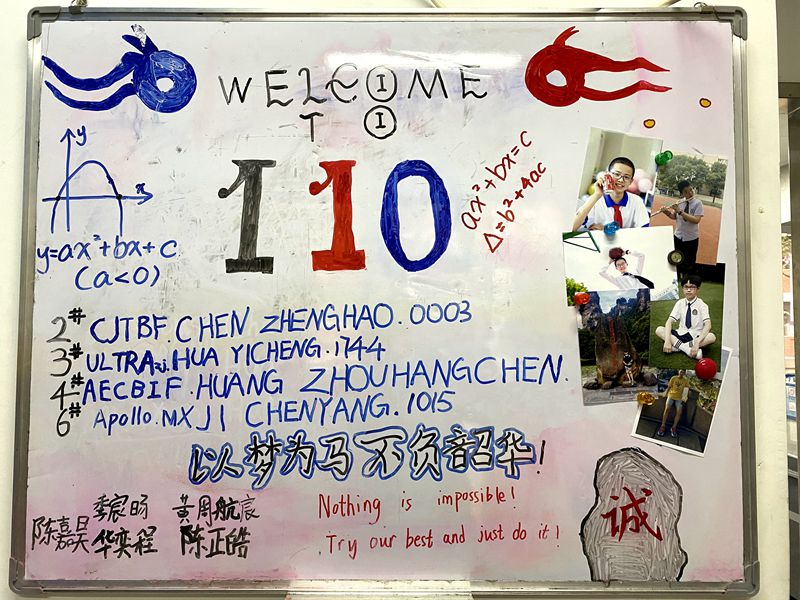 WELCOME
TO
110
y
x
y=ax²+bx+c
(a<0)
ax²+bx=c
Δ=b²+4ac
2# CJTBF.CHEN ZHENGHAO.0003
3# HUA YICHENG.1744
4# AECBIF.HUANG ZHOUHANGCHEN.
6# Apollo.MX JI CHENYANG.1015
以梦为马 不负韶华!
季宸旸 黄周航宸
陈嘉昊 华奕程 陈正皓
Nothing is impossible!
Try our best and just do it!
诚